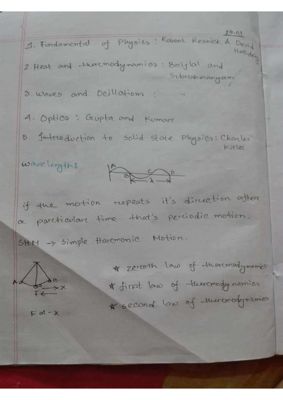 1. Fundamental of Physics : Resnick & David
Halliday
2 Heat and thermodynamics : Brijlal and
Subrahmanyam
3. Waves and Oscillations :
4. Optics : Gupta and Kumar
5 Introduction to solid state Physics : Charles
Kittel
wavelength :
A
if the motion repeats it's direction after
a particular time that's periodic motion.
SHM → Simple Harmonic Motion.
A
B
F ← → x
F α - x
* zeroth law of thermodynamics
* first law of thermodynamics
* second law of thermodynamics